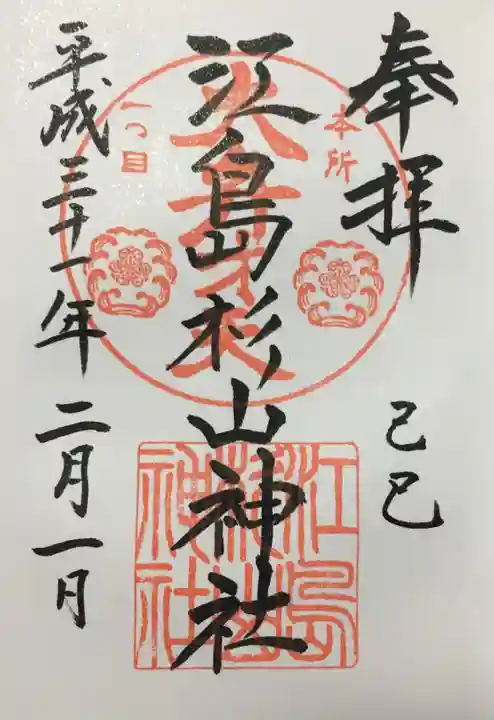 奉拝
己巳
本所
一つ目
江島杉山神社
江島杉山神社
平成三十一年二月一日